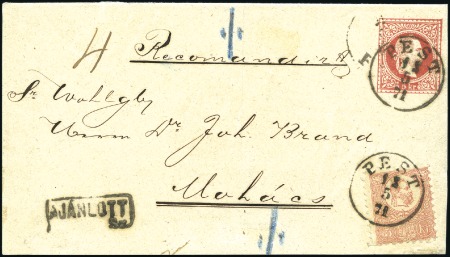 4
Recomandirt
PEST
12
5
71
Sr Wohlgb
Herrn Dr. Joh. Brand
Mohács
AJÁNLOTT
PEST
12
5
71